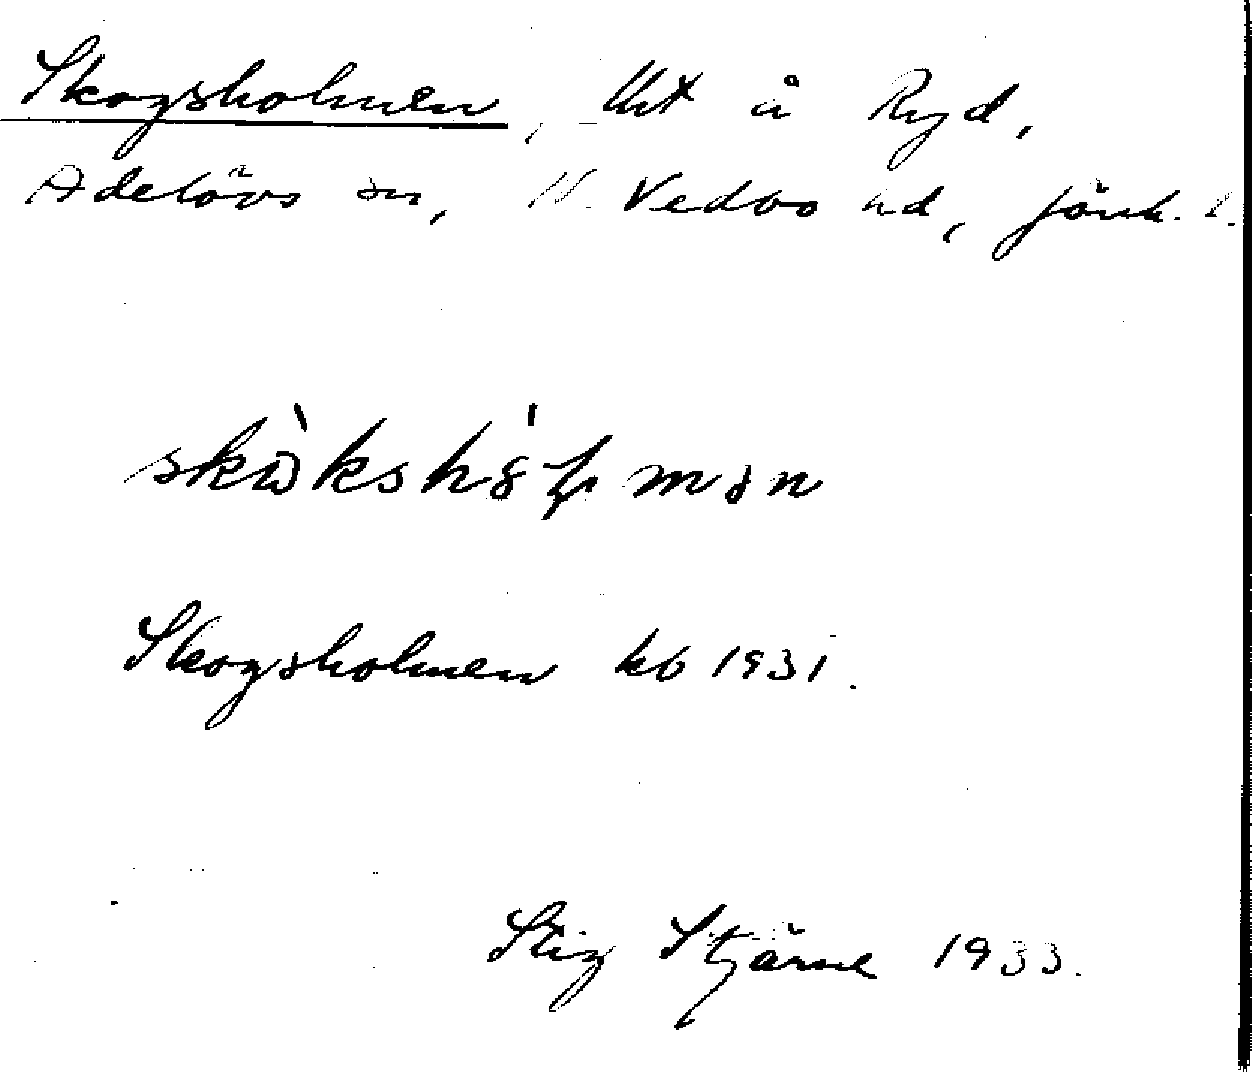 Skogsholmen, lht å Ryd,
Adelövs sn, N. Vedbo hd, Jönk. l.
Skogsholmen kb 1931.
Stig Stjärne 1933.